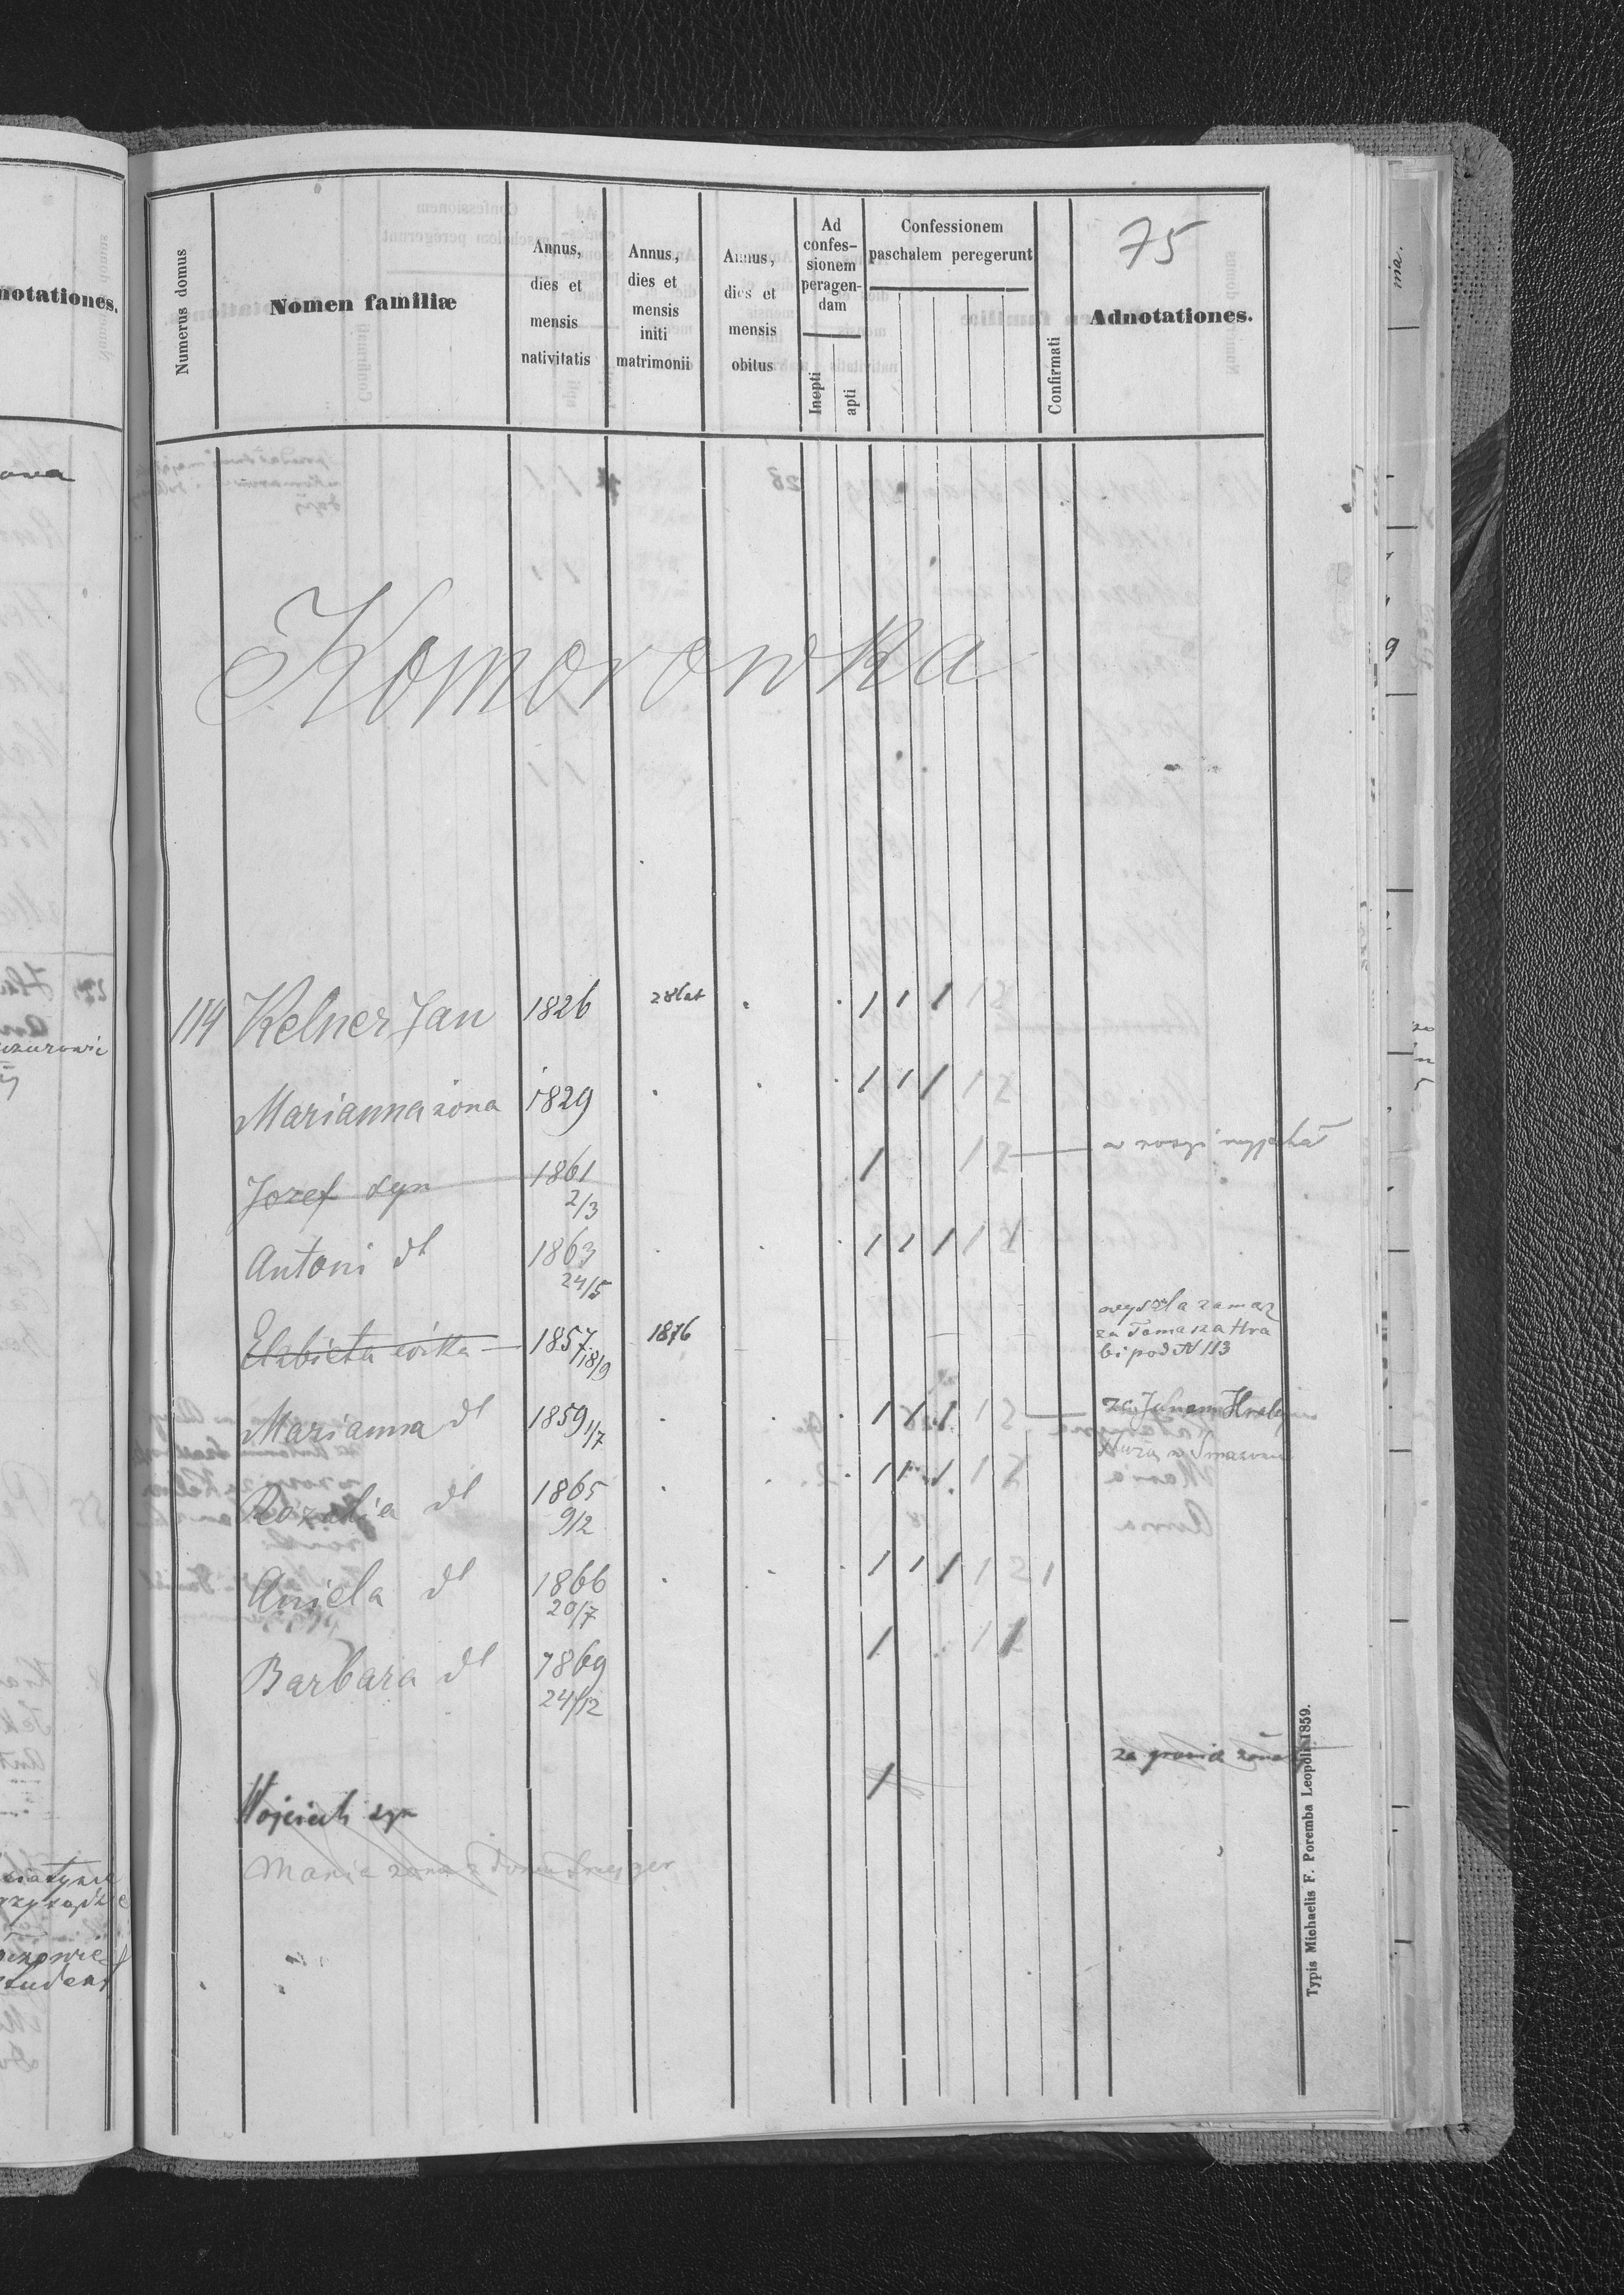 notationes.
Numerus domus
Nomen familiæ
Annus, dies et mensis nativitatis
Annus, dies et mensis initi matrimonii
Annus, dies et mensis obitus
Ad confes-sionem peragen-dam
Inepti
apti
Confessionem paschalem peregerunt
Confirmati
75
Adnotationes.
Komorowka
114 Kelner Jan 1826 28 lat 1 1 1 1 2
Marianna żona 1829 1 1 1 1 2
Jozef syn 1861 2/3 1 1 2
Antoni dt 1863 24/5 1 1 1 1
Elzbieta córka 1857 18/9 1876
wyszła zamąz
za Tomasza Hra
bi pod N 113
Marianna dt 1859 1/7 1 1 1 1 2
za Janem
Rozalia dt 1865 9/2 1 1 1 1 2
Aniela dt 1866 20/7 1 1 1 1 2 1
Barbara dt 1869 24/12 1 1
Wojciech syn 1
Maria żona z domu
Typis Michaelis F. Poremba Leopoli 1859.